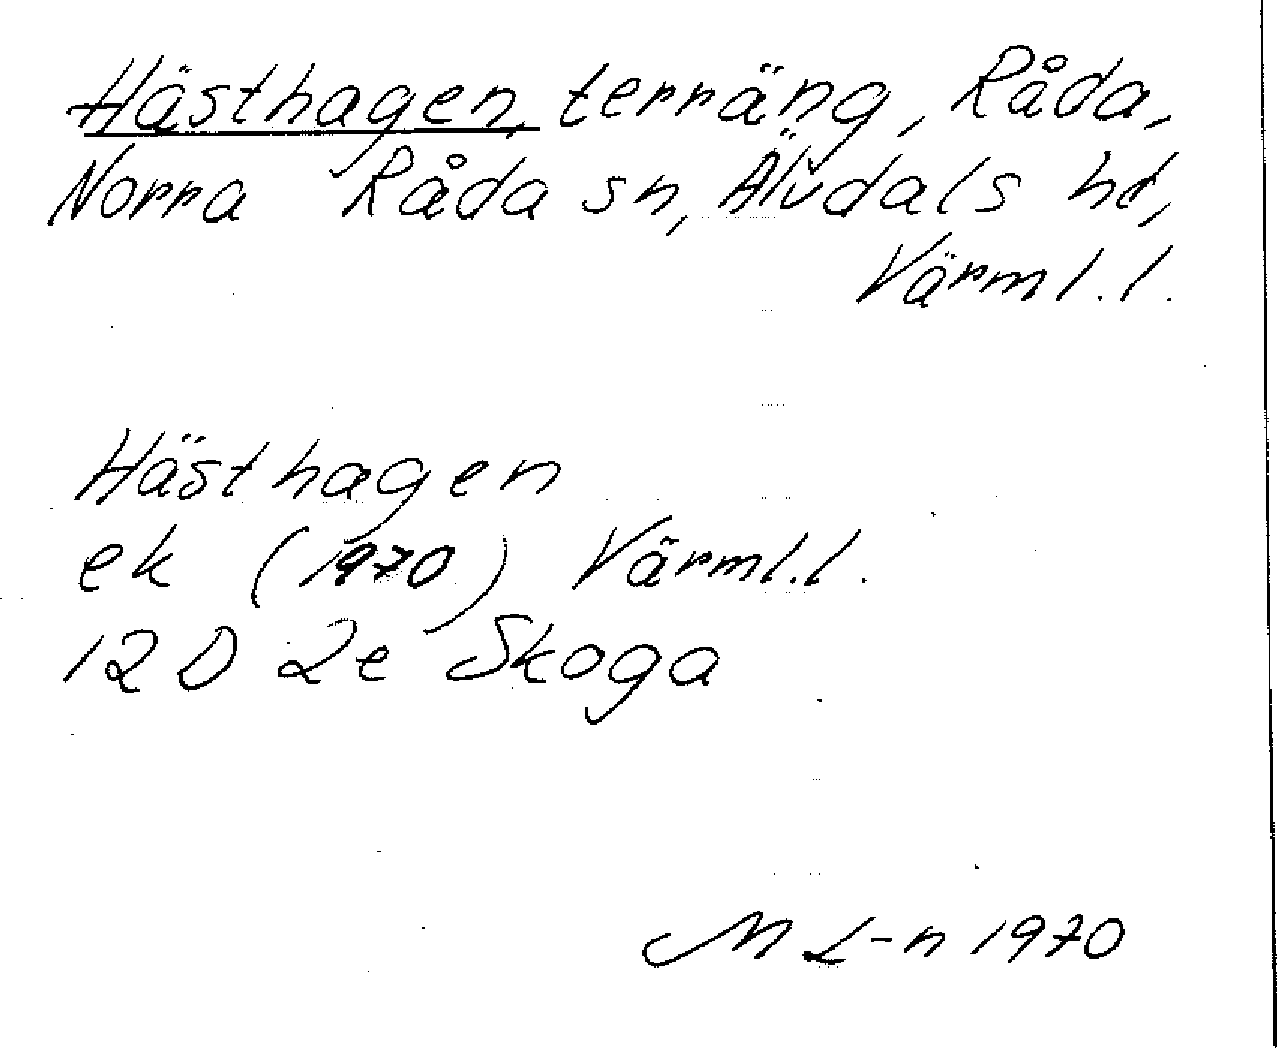 Hästhagen, terräng, Råda,
Norra Råda sn, Älvdals hd,
Värml.l.
Hästhagen
ek (1970) Värml.l.
12 D 2e Skoga
M L-n 1970